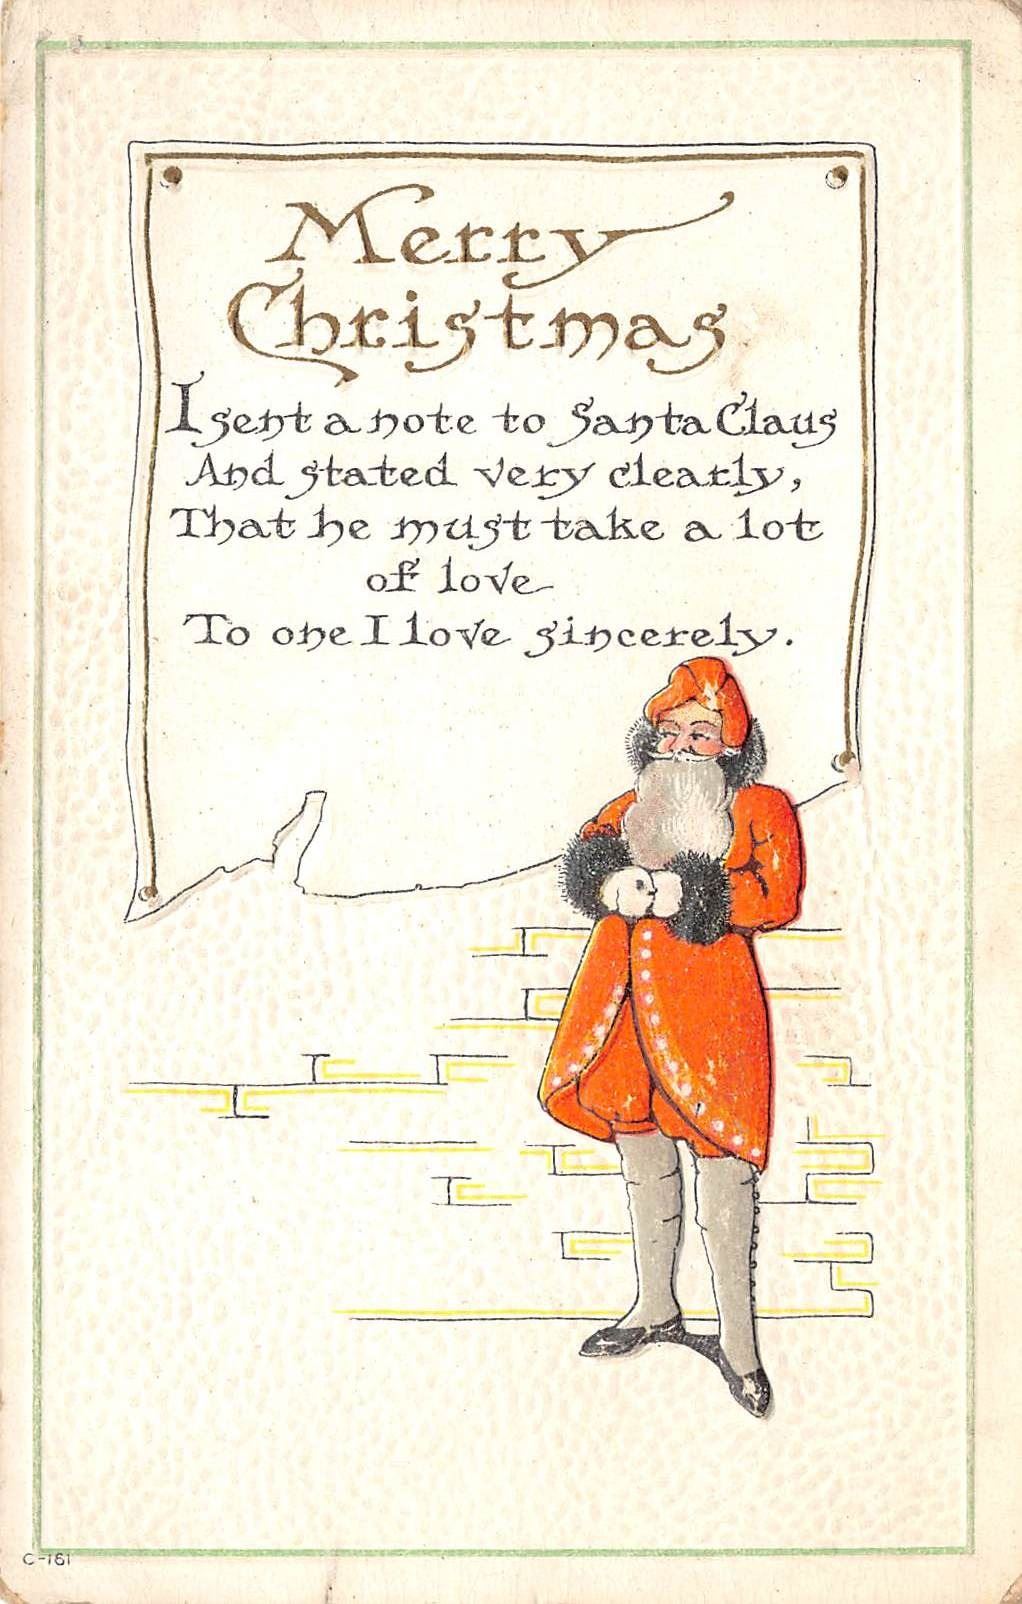 Merry
Christmas
I sent a note to Santa Claus
And stated very clearly,
That he must take a lot
of love
To one I love sincerely.
C-161